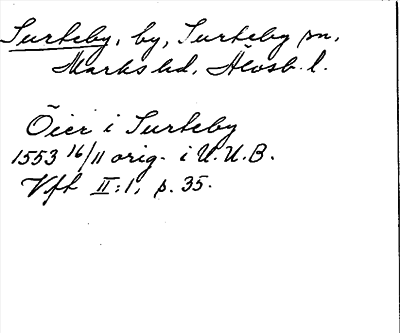 Surteby, by, Surteby sn,
Marks hd, Älvsb. l.
Öier i Surteby
1553 16/11 orig. i U.U.B.
Vft II:1, p. 35.